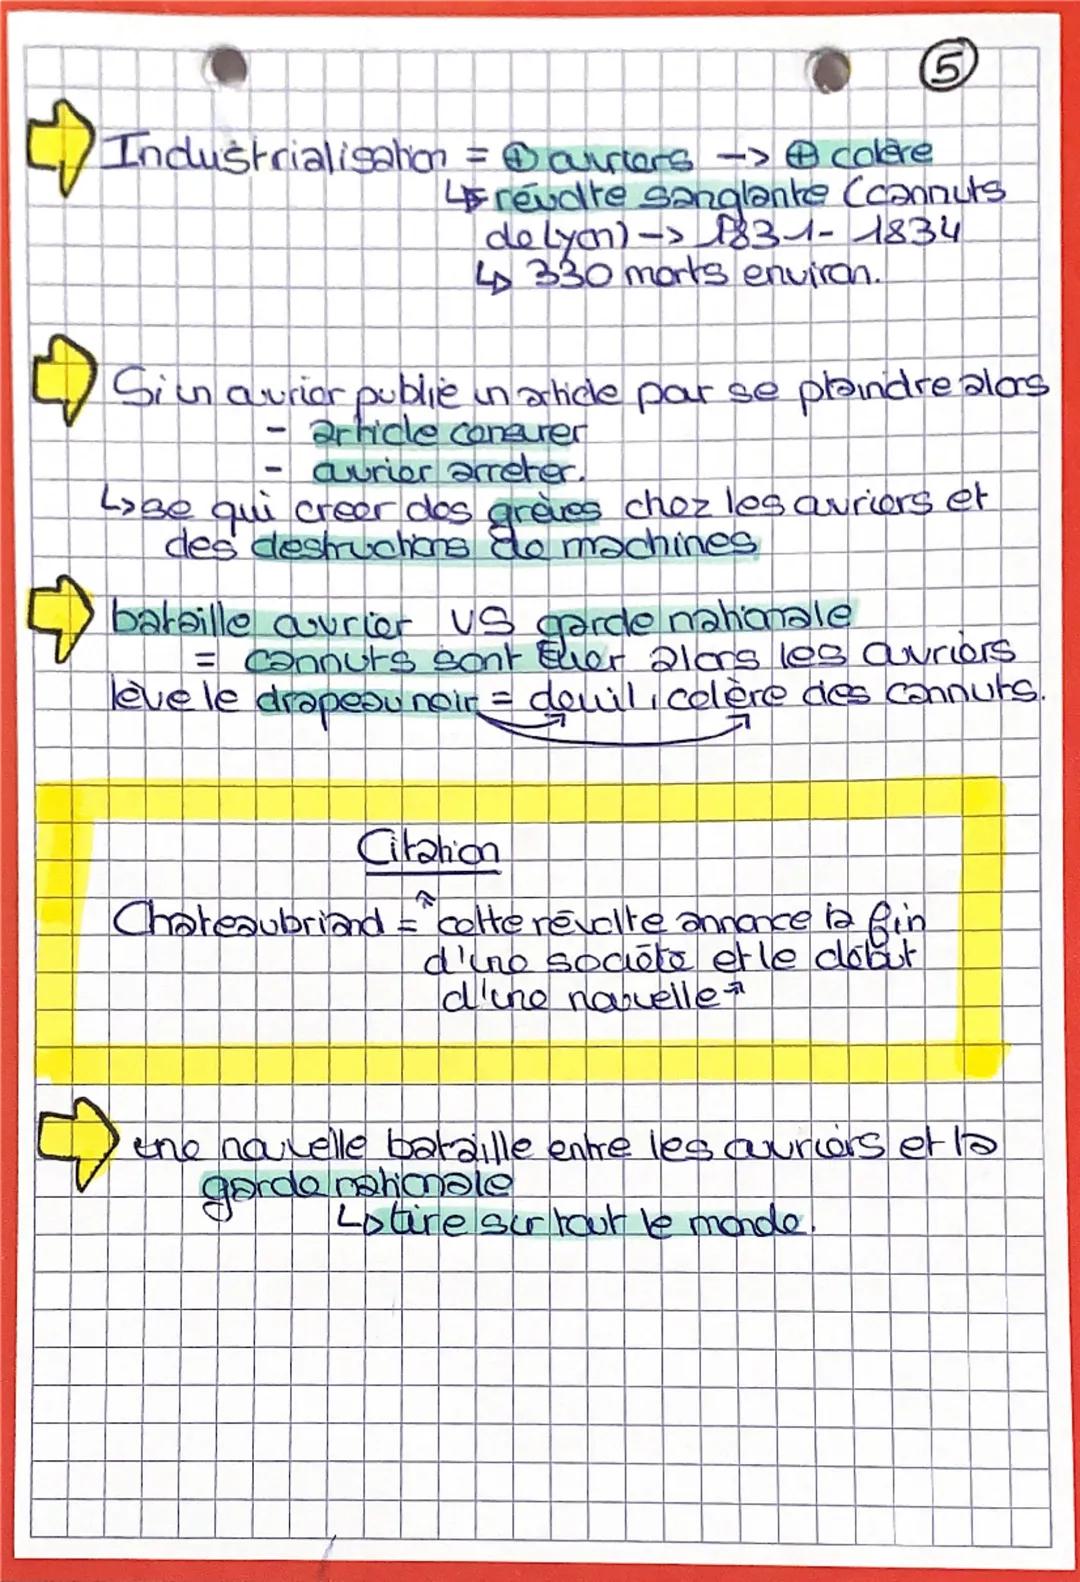 5
Industrialisation = ⊕ ouvriers -> ⊕ colère
↳ révolte sanglante (cannuts
de Lyon) -> 1831- 1834
↳ 330 morts environ.
Si un ouvrier publie un article pour se plaindre alors
- article consurer
- ouvrier arreter.
↳ se qui creer des grèves chez les ouvriers et
des destructions de machines
bataille ouvrier VS garde nationale
= cannuts sont tuer alors les ouvriers
lève le drapeau noir = deuil, colère des cannuts.
Citation
Chateaubriand = "cette révolte annonce la fin
d'une société et le début
d'une nouvelle"
une nouvelle bataille entre les ouvriers et la
garde nationale
↳ tire sur tout le monde.